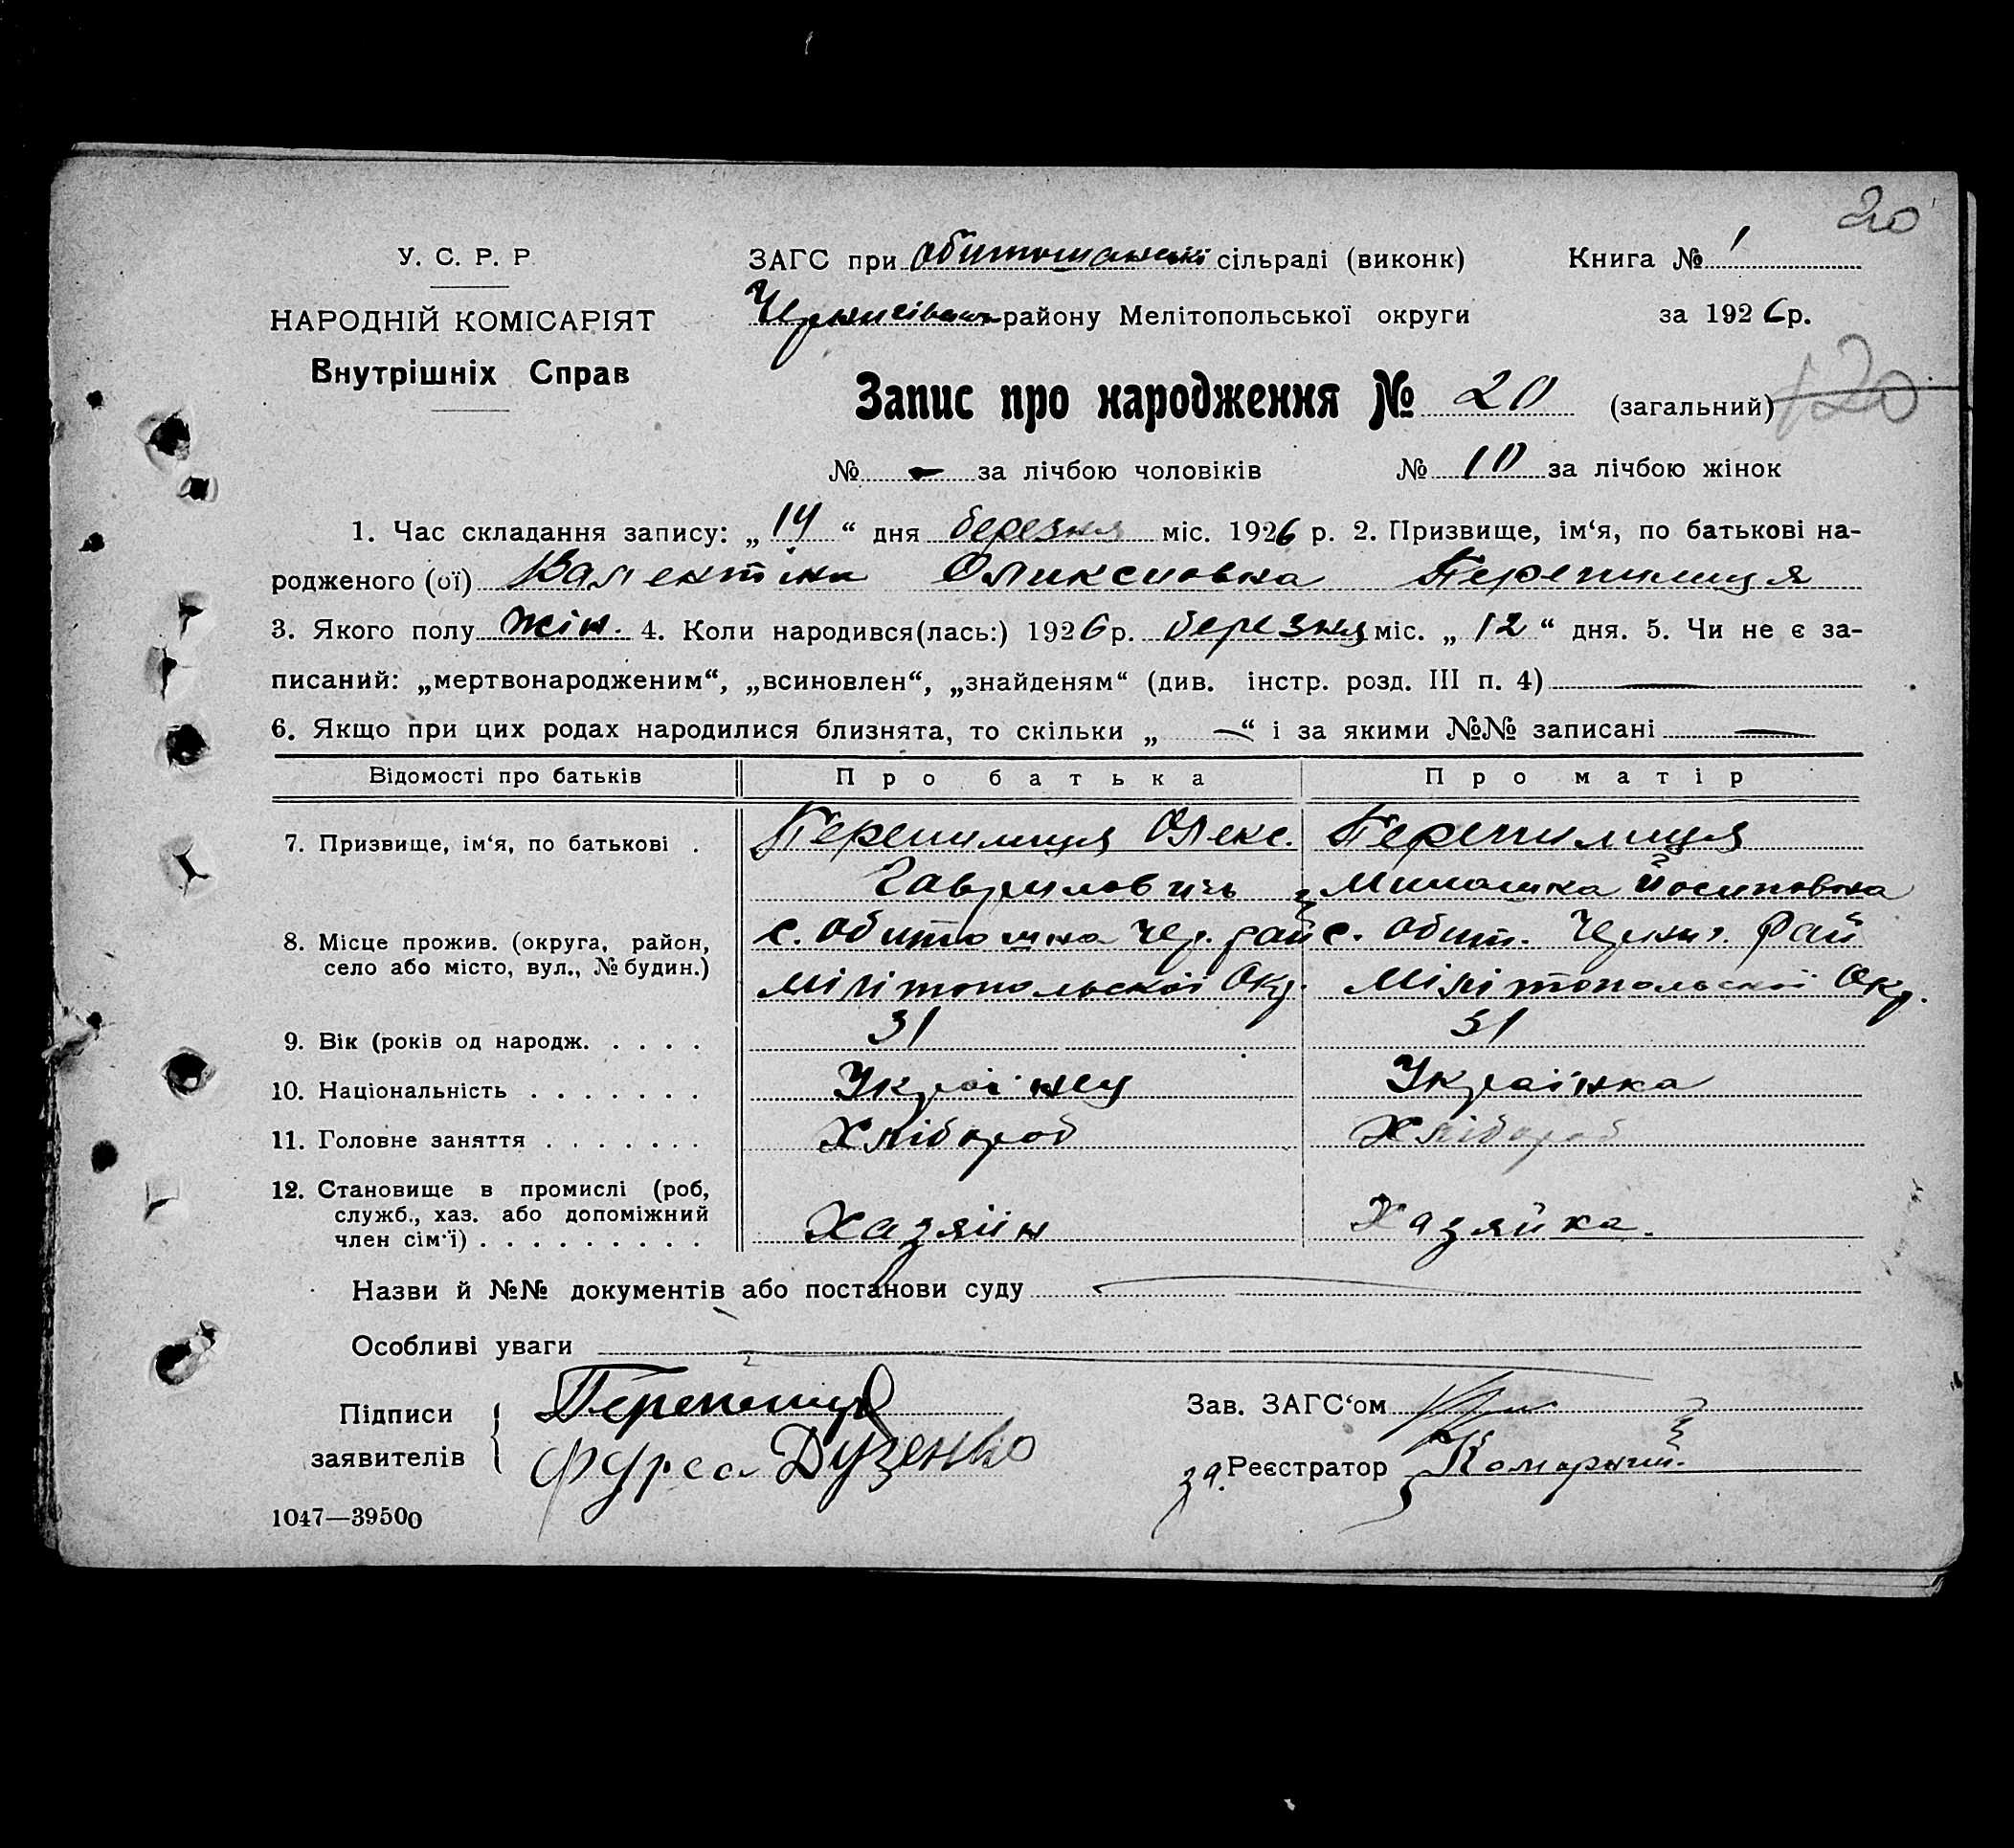 20
У. С. Р. Р
НАРОДНІЙ КОМІСАРІЯТ
Внутрішніх Справ
ЗАГС при Обитошанські сільраді (виконк)
Книга № 1
району Мелітопольської округи
за 1926 р.
Запис про народження № 20 (загальний) 120
№ - за лічбою чоловіків № 10 за лічбою жінок
1. Час складання запису: „14“ дня березня міс. 1926 р. 2. Призвище, ім‘я, по батькові на-
родженого (ої) Валентіна Оликсиовна Перепилиця
3. Якого полу жін. 4. Коли народився(лась:) 1926 р. березня міс. „12“ дня. 5. Чи не є за-
писаний: „мертвонародженим“, „всиновлен“, „знайденям“ (див. інстр. розд. III п. 4) —
6. Якщо при цих родах народилися близнята, то скільки „—“ і за якими №№ записані —
Відомості про батьків Про батька Про матір
7. Призвище, ім‘я, по батькові . Перепилиця Олекс. Перепилиця
Гаврилович Йосиповна
8. Місце прожив. (округа, район, с. Обитошна Чер. рай с. Обит. Черниг. Рай
село або місто, вул., № будин.)
Мілітопольскої Окр. Мілітопольскої Окр.
9. Вік (років од народж. . . . . 31 31
10. Національність . . . . . . . Україней Українка
11. Головне заняття . . . . . . . Хлібороб Хлібороб
12. Становище в промислі (роб,
служб., хаз. або допоміжний
член сім‘ї) . . . . . . . . . Хазяїн Хазяйка.
Назви й №№ документів або постанови суду
Особливі уваги
Підписи
заявителів
Фурса Дузенко
Зав. ЗАГС‘ом
за. Реєстратор
1047—39500